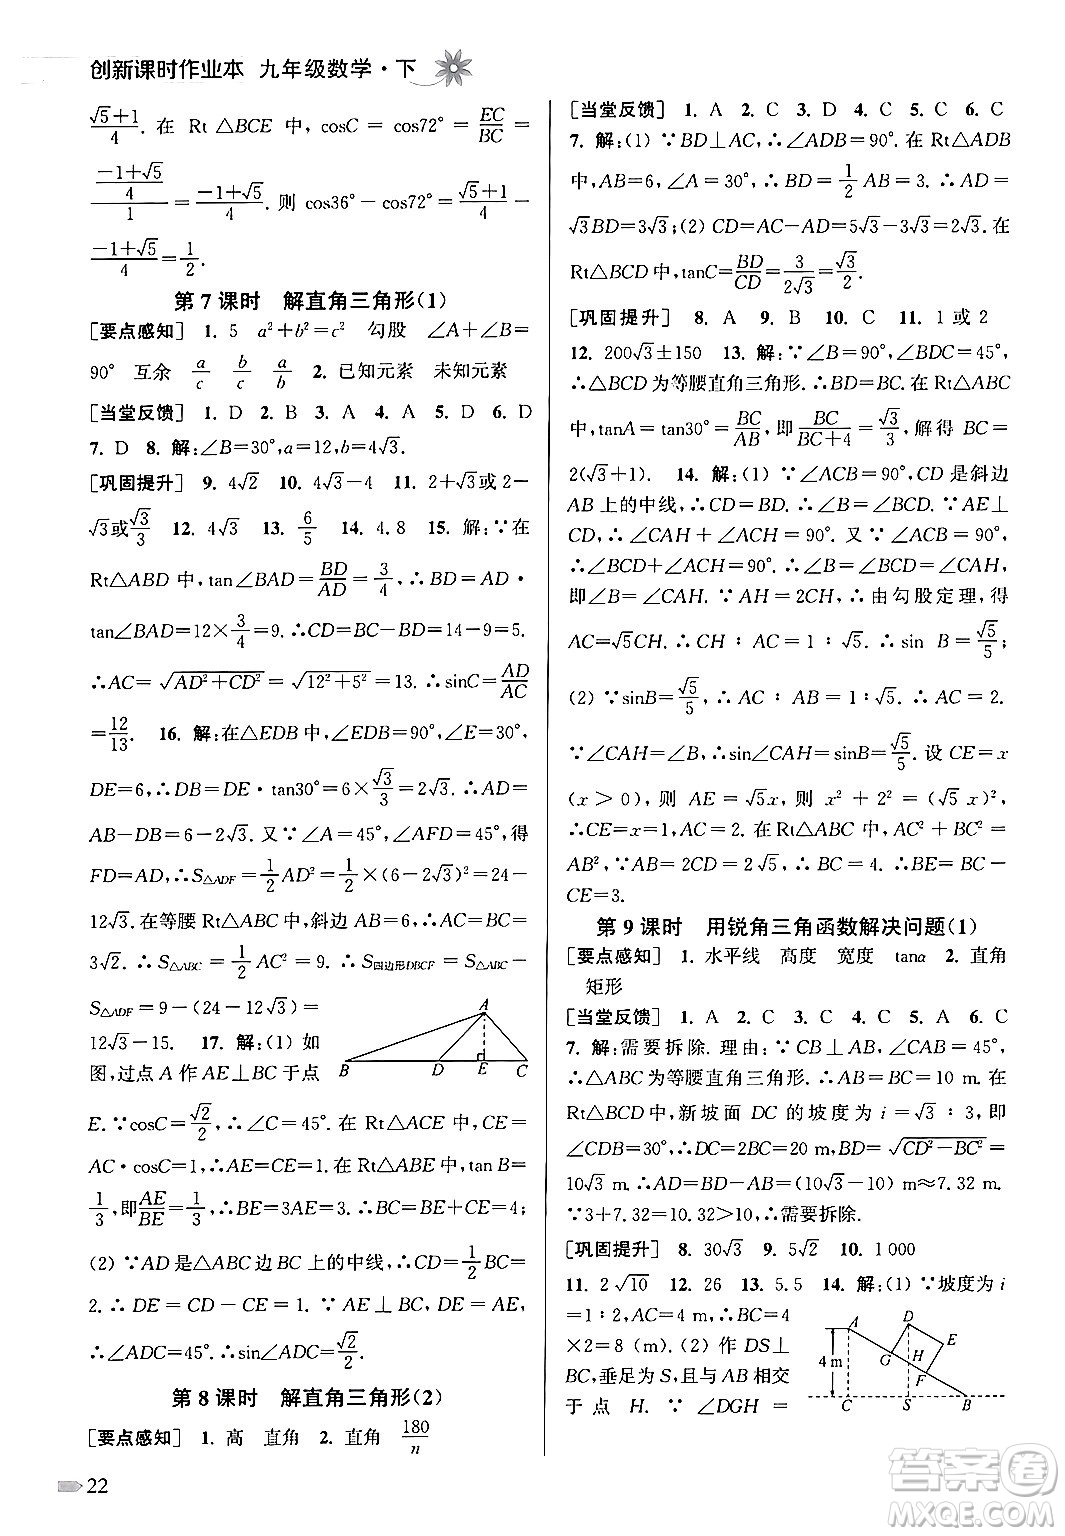 创新课时作业本 九年级数学·下
(√5+1)/4. 在 Rt △BCE 中, cosC = cos72° = EC/BC =
((-1+√5)/4)/1 = (-1+√5)/4. 则 cos36°-cos72° = (√5+1)/4 -
(-1+√5)/4 = 1/2.
第 7 课时 解直角三角形(1)
[要点感知] 1. 5 a²+b²=c² 勾股 ∠A+∠B=
90° 互余 a/c b/c a/b 2. 已知元素 未知元素
[当堂反馈] 1. D 2. B 3. A 4. A 5. D 6. D
7. D 8. 解:∠B=30°,a=12,b=4√3.
[巩固提升] 9. 4√2 10. 4√3-4 11. 2+√3或2-
√3或√3/3 12. 4√3 13. 6/5 14. 4.8 15. 解:∵在
Rt△ABD 中,tan∠BAD=BD/AD=3/4,∴BD=AD·
tan∠BAD=12×3/4=9.∴CD=BC-BD=14-9=5.
∴AC=√(AD²+CD²)=√(12²+5²)=13.∴sinC=AD/AC
=12/13. 16. 解:在△EDB 中,∠EDB=90°,∠E=30°,
DE=6,∴DB=DE·tan30°=6×√3/3=2√3.∴AD=
AB-DB=6-2√3.又∵∠A=45°,∠AFD=45°,得
FD=AD,∴S△ADF=1/2AD²=1/2×(6-2√3)²=24-
12√3.在等腰 Rt△ABC 中,斜边 AB=6,∴AC=BC=
3√2.∴S△ABC=1/2AC²=9.∴S四边形DBCF=S△ABC-
S△ADF=9-(24-12√3)=
12√3-15. 17. 解:(1) 如
图,过点 A 作 AE⊥BC 于点
A B D E C
E.∵cosC=√2/2,∴∠C=45°.在 Rt△ACE 中,CE=
AC·cosC=1,∴AE=CE=1.在 Rt△ABE中,tan B=
1/3,即AE/BE=1/3,∴BE=3AE=3.∴BC=BE+CE=4;
(2) ∵AD是△ABC边BC上的中线,∴CD=1/2BC=
2.∴DE=CD-CE=1.∵AE⊥BC,DE=AE,
∴∠ADC=45°.∴sin∠ADC=√2/2.
第 8 课时 解直角三角形(2)
[要点感知] 1. 高 直角 2. 直角 180/n
22
[当堂反馈] 1. A 2. C 3. D 4. C 5. C 6. C
7. 解:(1) ∵BD⊥AC,∴∠ADB=90°.在 Rt△ADB
中,AB=6,∠A=30°,∴BD=1/2AB=3.∴AD=
√3BD=3√3;(2) CD=AC-AD=5√3-3√3=2√3.在
Rt△BCD 中,tanC=BD/CD=3/(2√3)=√3/2.
[巩固提升] 8. A 9. B 10. C 11. 1 或 2
12. 200√3±150 13. 解:∵∠B=90°,∠BDC=45°,
∴△BCD 为等腰直角三角形.∴BD=BC.在 Rt△ABC
中,tanA=tan30°=BC/AB,即BC/(BC+4)=√3/3,解得 BC=
2(√3+1). 14. 解:(1) ∵∠ACB=90°,CD 是斜边
AB 上的中线,∴CD=BD.∴∠B=∠BCD.∵AE⊥
CD,∴∠CAH+∠ACH=90°.又∵∠ACB=90°,
∴∠BCD+∠ACH=90°.∴∠B=∠BCD=∠CAH,
即∠B=∠CAH.∵AH=2CH,∴由勾股定理,得
AC=√5CH.∴CH∶AC=1∶√5.∴sin B=√5/5;
(2) ∵sinB=√5/5,∴AC∶AB=1∶√5.∴AC=2.
∵∠CAH=∠B,∴sin∠CAH=sinB=√5/5.设 CE=x
(x>0),则 AE=√5x,则 x²+2²=(√5x)²,
∴CE=x=1,AC=2.在 Rt△ABC 中,AC²+BC²=
AB²,∵AB=2CD=2√5,∴BC=4.∴BE=BC-
CE=3.
第 9 课时 用锐角三角函数解决问题(1)
[要点感知] 1. 水平线 高度 宽度 tanα 2. 直角
矩形
[当堂反馈] 1. A 2. C 3. C 4. C 5. A 6. C
7. 解:需要拆除.理由:∵CB⊥AB,∠CAB=45°,
∴△ABC为等腰直角三角形.∴AB=BC=10 m.在
Rt△BCD中,新坡面 DC 的坡度为 i=√3∶3,即
∠CDB=30°,∴DC=2BC=20 m,BD=√(CD²-BC²)=
10√3 m.∴AD=BD-AB=(10√3-10) m≈7.32 m.
∵3+7.32=10.32>10,∴需要拆除.
[巩固提升] 8. 30√3 9. 5√2 10. 1 000
11. 2√10 12. 26 13. 5.5 14. 解:(1) ∵坡度为 i
=1∶2,AC=4 m,∴BC=4
×2=8 (m).(2) 作 DS⊥
BC,垂足为 S,且与 AB 相交
于点 H.∵∠DGH=
A D E G H F 4 m C S B
答案圈
MXQE.COM